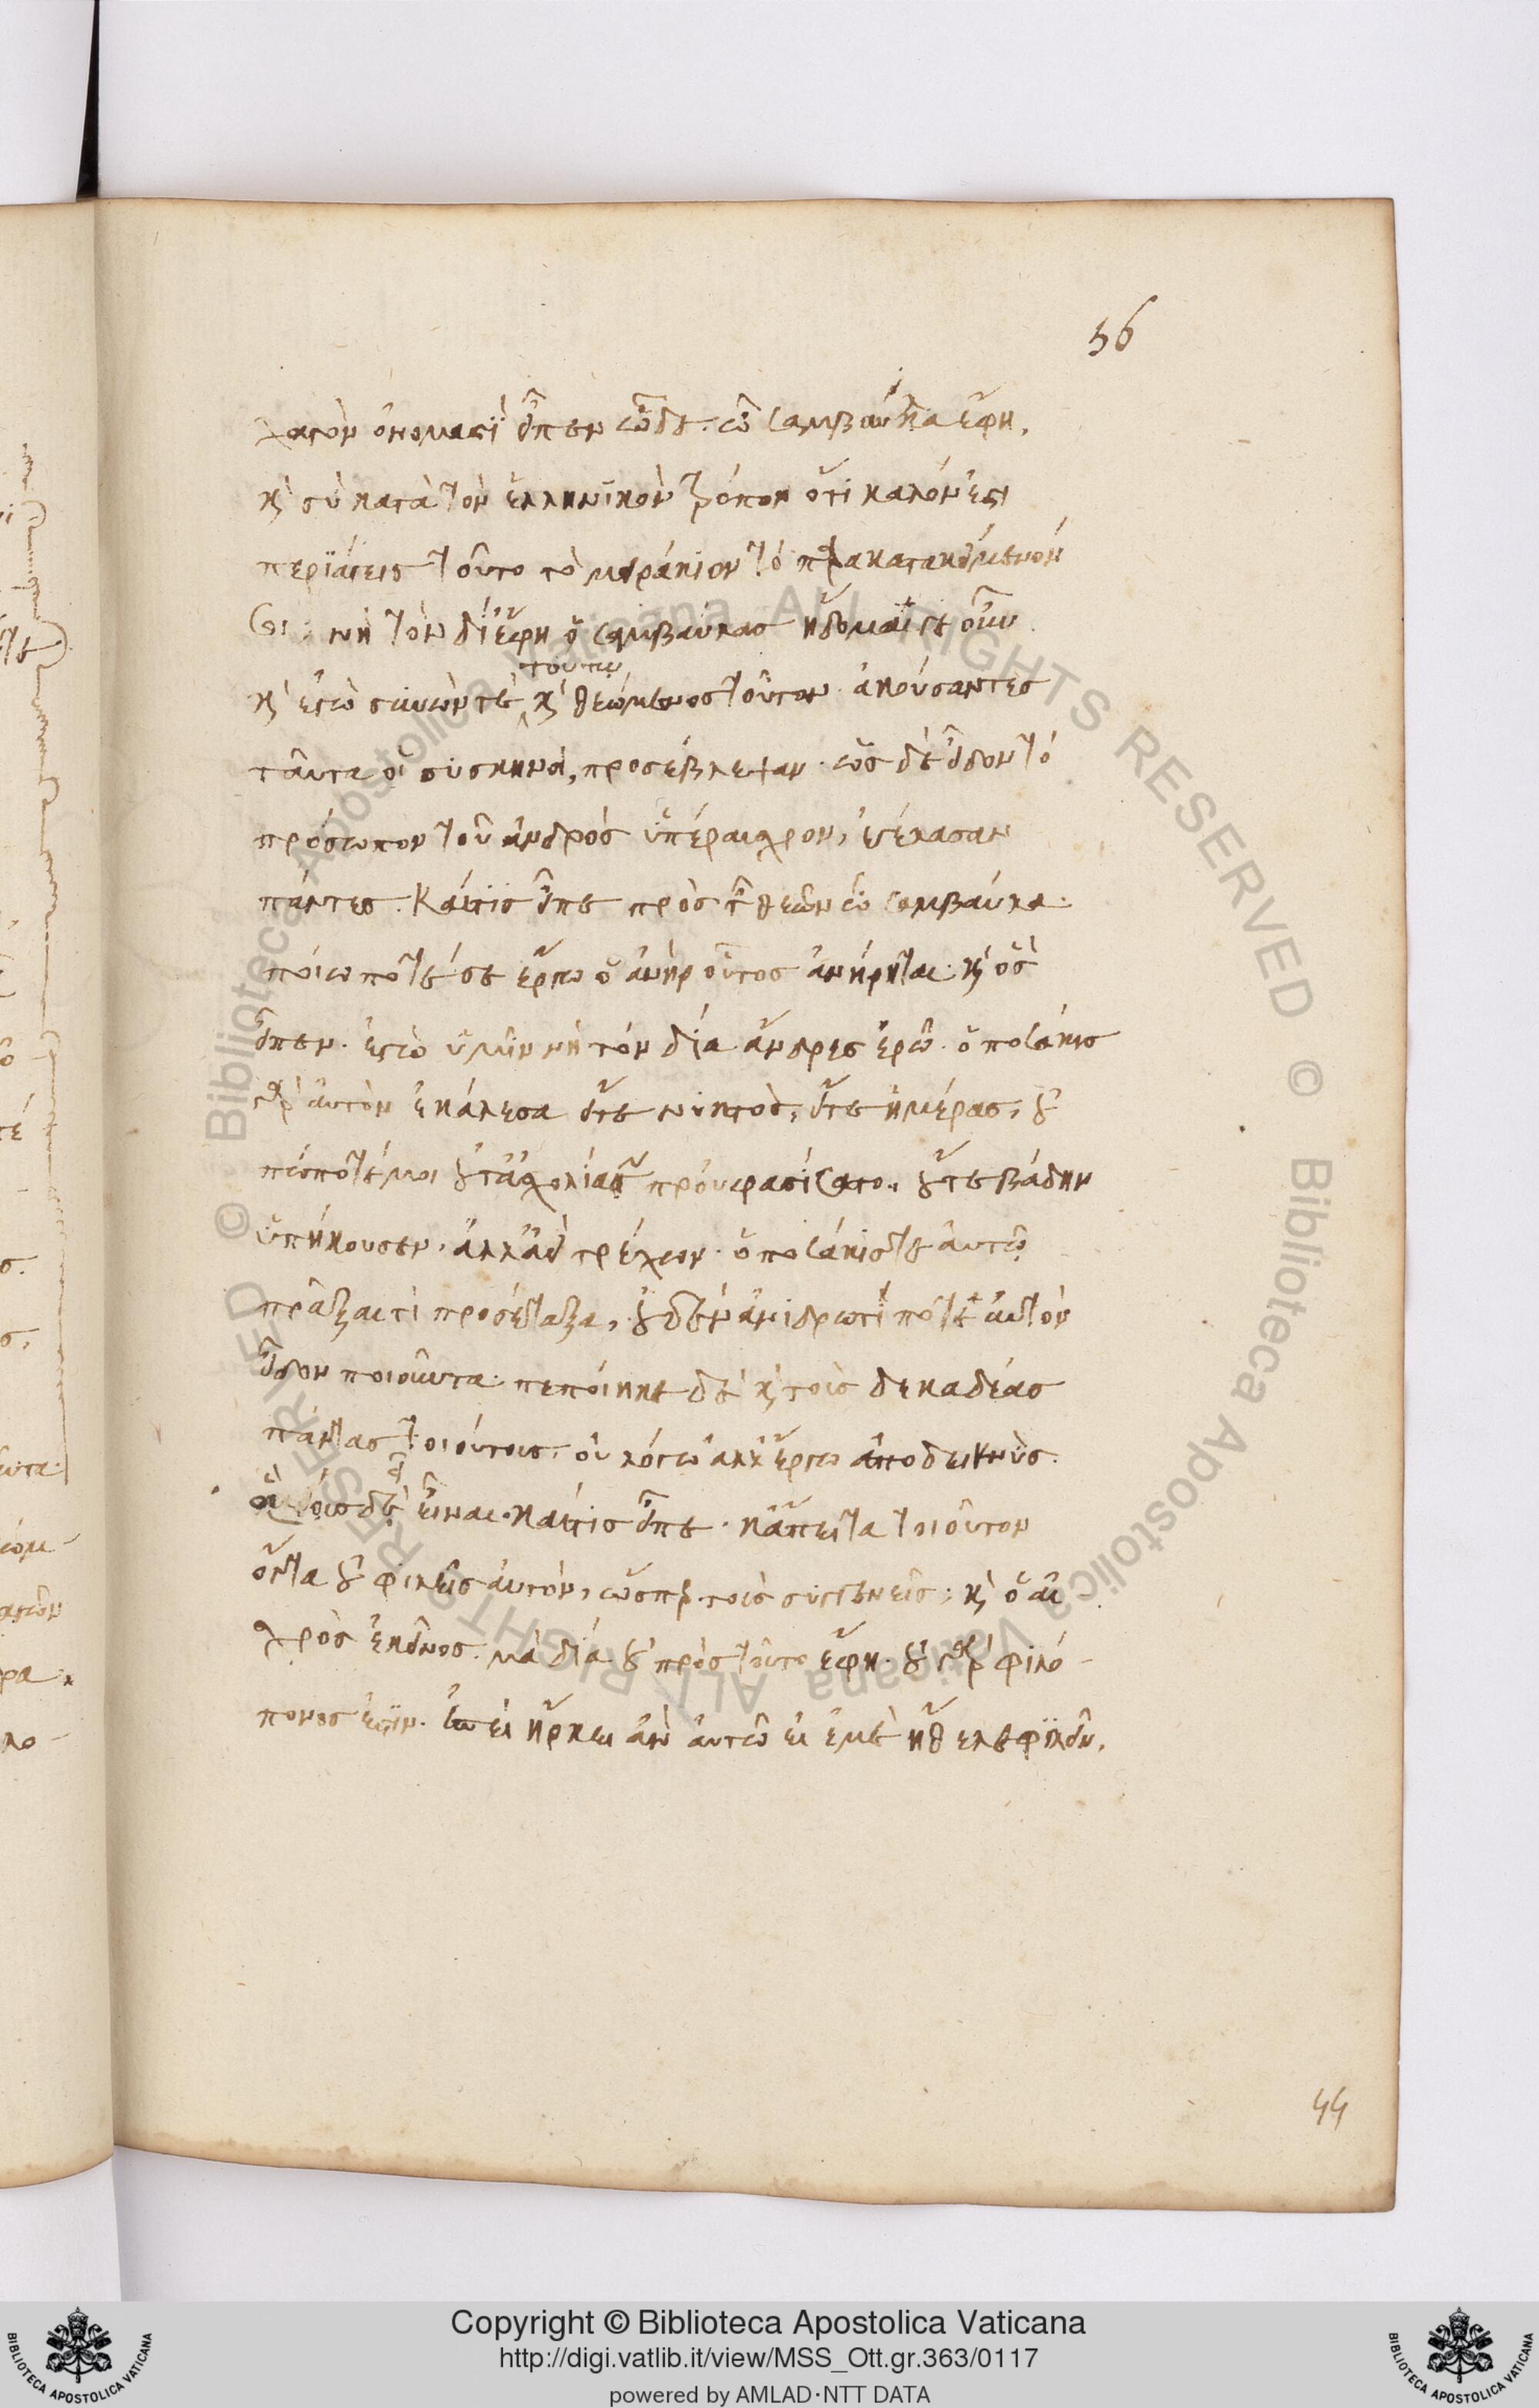 56
χαγὸν ὀνομαστὶ εἶπεν ὧδε. ὦ σαμβαύλα ἔφη,
καὶ σὺ κατὰ τὸν ἑλληνικὸν τρόπον ὅτι καλόν ἐστι
περιάγεις τοῦτο τὸ μειράκιον τὸ παρακατακείμενόν
σοι; νὴ τὸν δί' ἔφη ὁ σαμβαύλας ἥδομαί γε οὖν
τούτῳ
καὶ ἐγὼ συνών τε καὶ θεώμενος τοῦτον. ἀκούσαντες
ταῦτα οἱ σύσκηνοι, προσέβλεψαν. ὡς δὲ εἶδον τὸ
πρόσωπον τοῦ ἀνδρὸς ὑπέραισχρον, ἐγέλασαν
πάντες. Καί τις εἶπε πρὸς τῶν θεῶν ὦ σαμβαύλα.
ποίῳ ποτέ σε ἔργῳ ὁ ἀνὴρ οὗτος ἀνήρτηται. καὶ ὃς
εἶπεν. ἐγὼ ὑμῖν νὴ τὸν δία ἄνδρες ἐρῶ. ὁποσάκις
γὰρ αὐτὸν ἐκάλεσα εἴτε νυκτὸς, εἴτε ἡμέρας, οὐ
πώποτέ μοι οὔτ' ἀσχολίαν προυφασίσατο, οὔτε βάδην
ὑπήκουσεν, ἀλλ' ἀεὶ τρέχων. ὁποσάκις τε αὐτῷ
πρᾶξαί τι προσέταξα, οὐδὲν ἀνιδρωτί ποτε αὐτὸν
εἶδον ποιοῦντα. πεποίηκε δὲ καὶ τοὺς δεκαδέας
πάντας τοιούτους, οὐ λόγῳ ἀλλ' ἔργῳ ἀποδεικνὺς.
οἵους δεῖ εἶναι. καί τις εἶπε. κἄπειτα τοιοῦτον
ὄντα οὐ φιλεῖς αὐτὸν, ὥσπερ τοὺς συγγενεῖς; καὶ ὁ αἰ
χρὸς ἐκεῖνος. μὰ δία οὐ πρὸς τοῦτο ἔφη. οὐ γὰρ φιλό-
πονός ἐστιν. ἐπεὶ ἤρκει ἂν αὐτῷ εἰ ἐμὲ ἤθελε φιλεῖν.
44
Copyright © Biblioteca Apostolica Vaticana
http://digi.vatlib.it/view/MSS_Ott.gr.363/0117
powered by AMLAD·NTT DATA